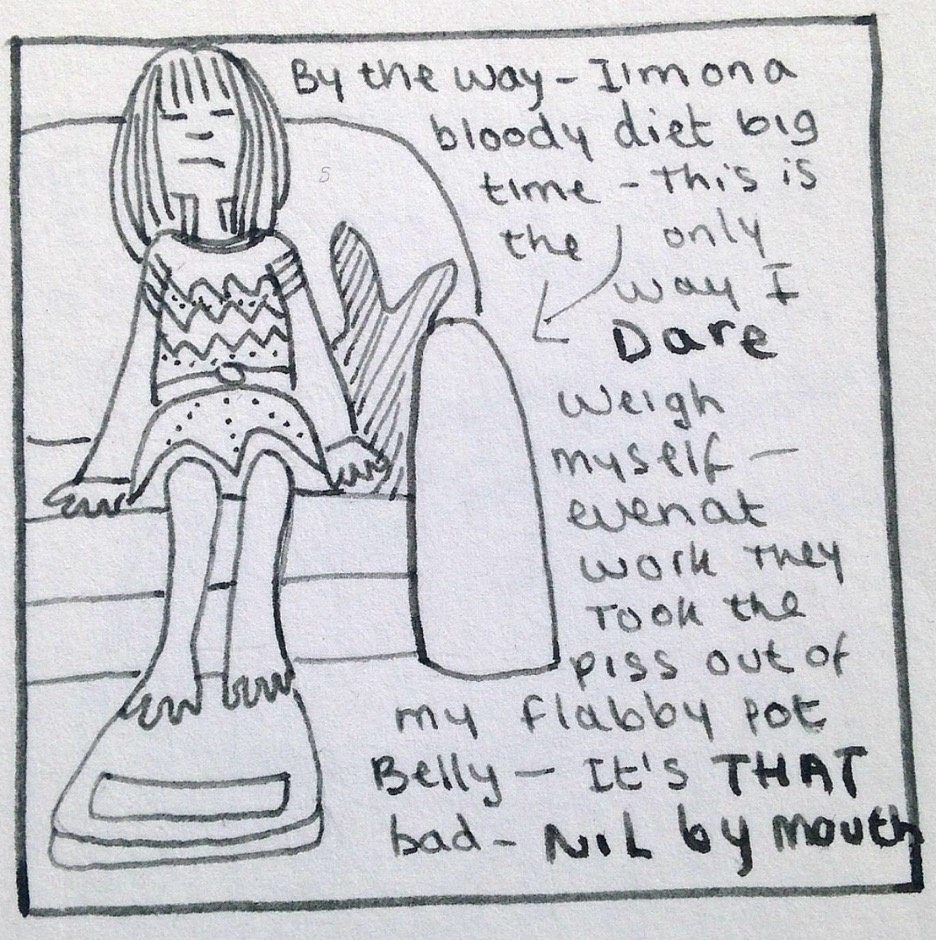 By the way - I'm on a
bloody diet big
time - This is
the only
way I
Dare
weigh
myself -
even at
work they
Took the
piss out of
my flabby pot
Belly - It's THAT
bad - NIL by mouth